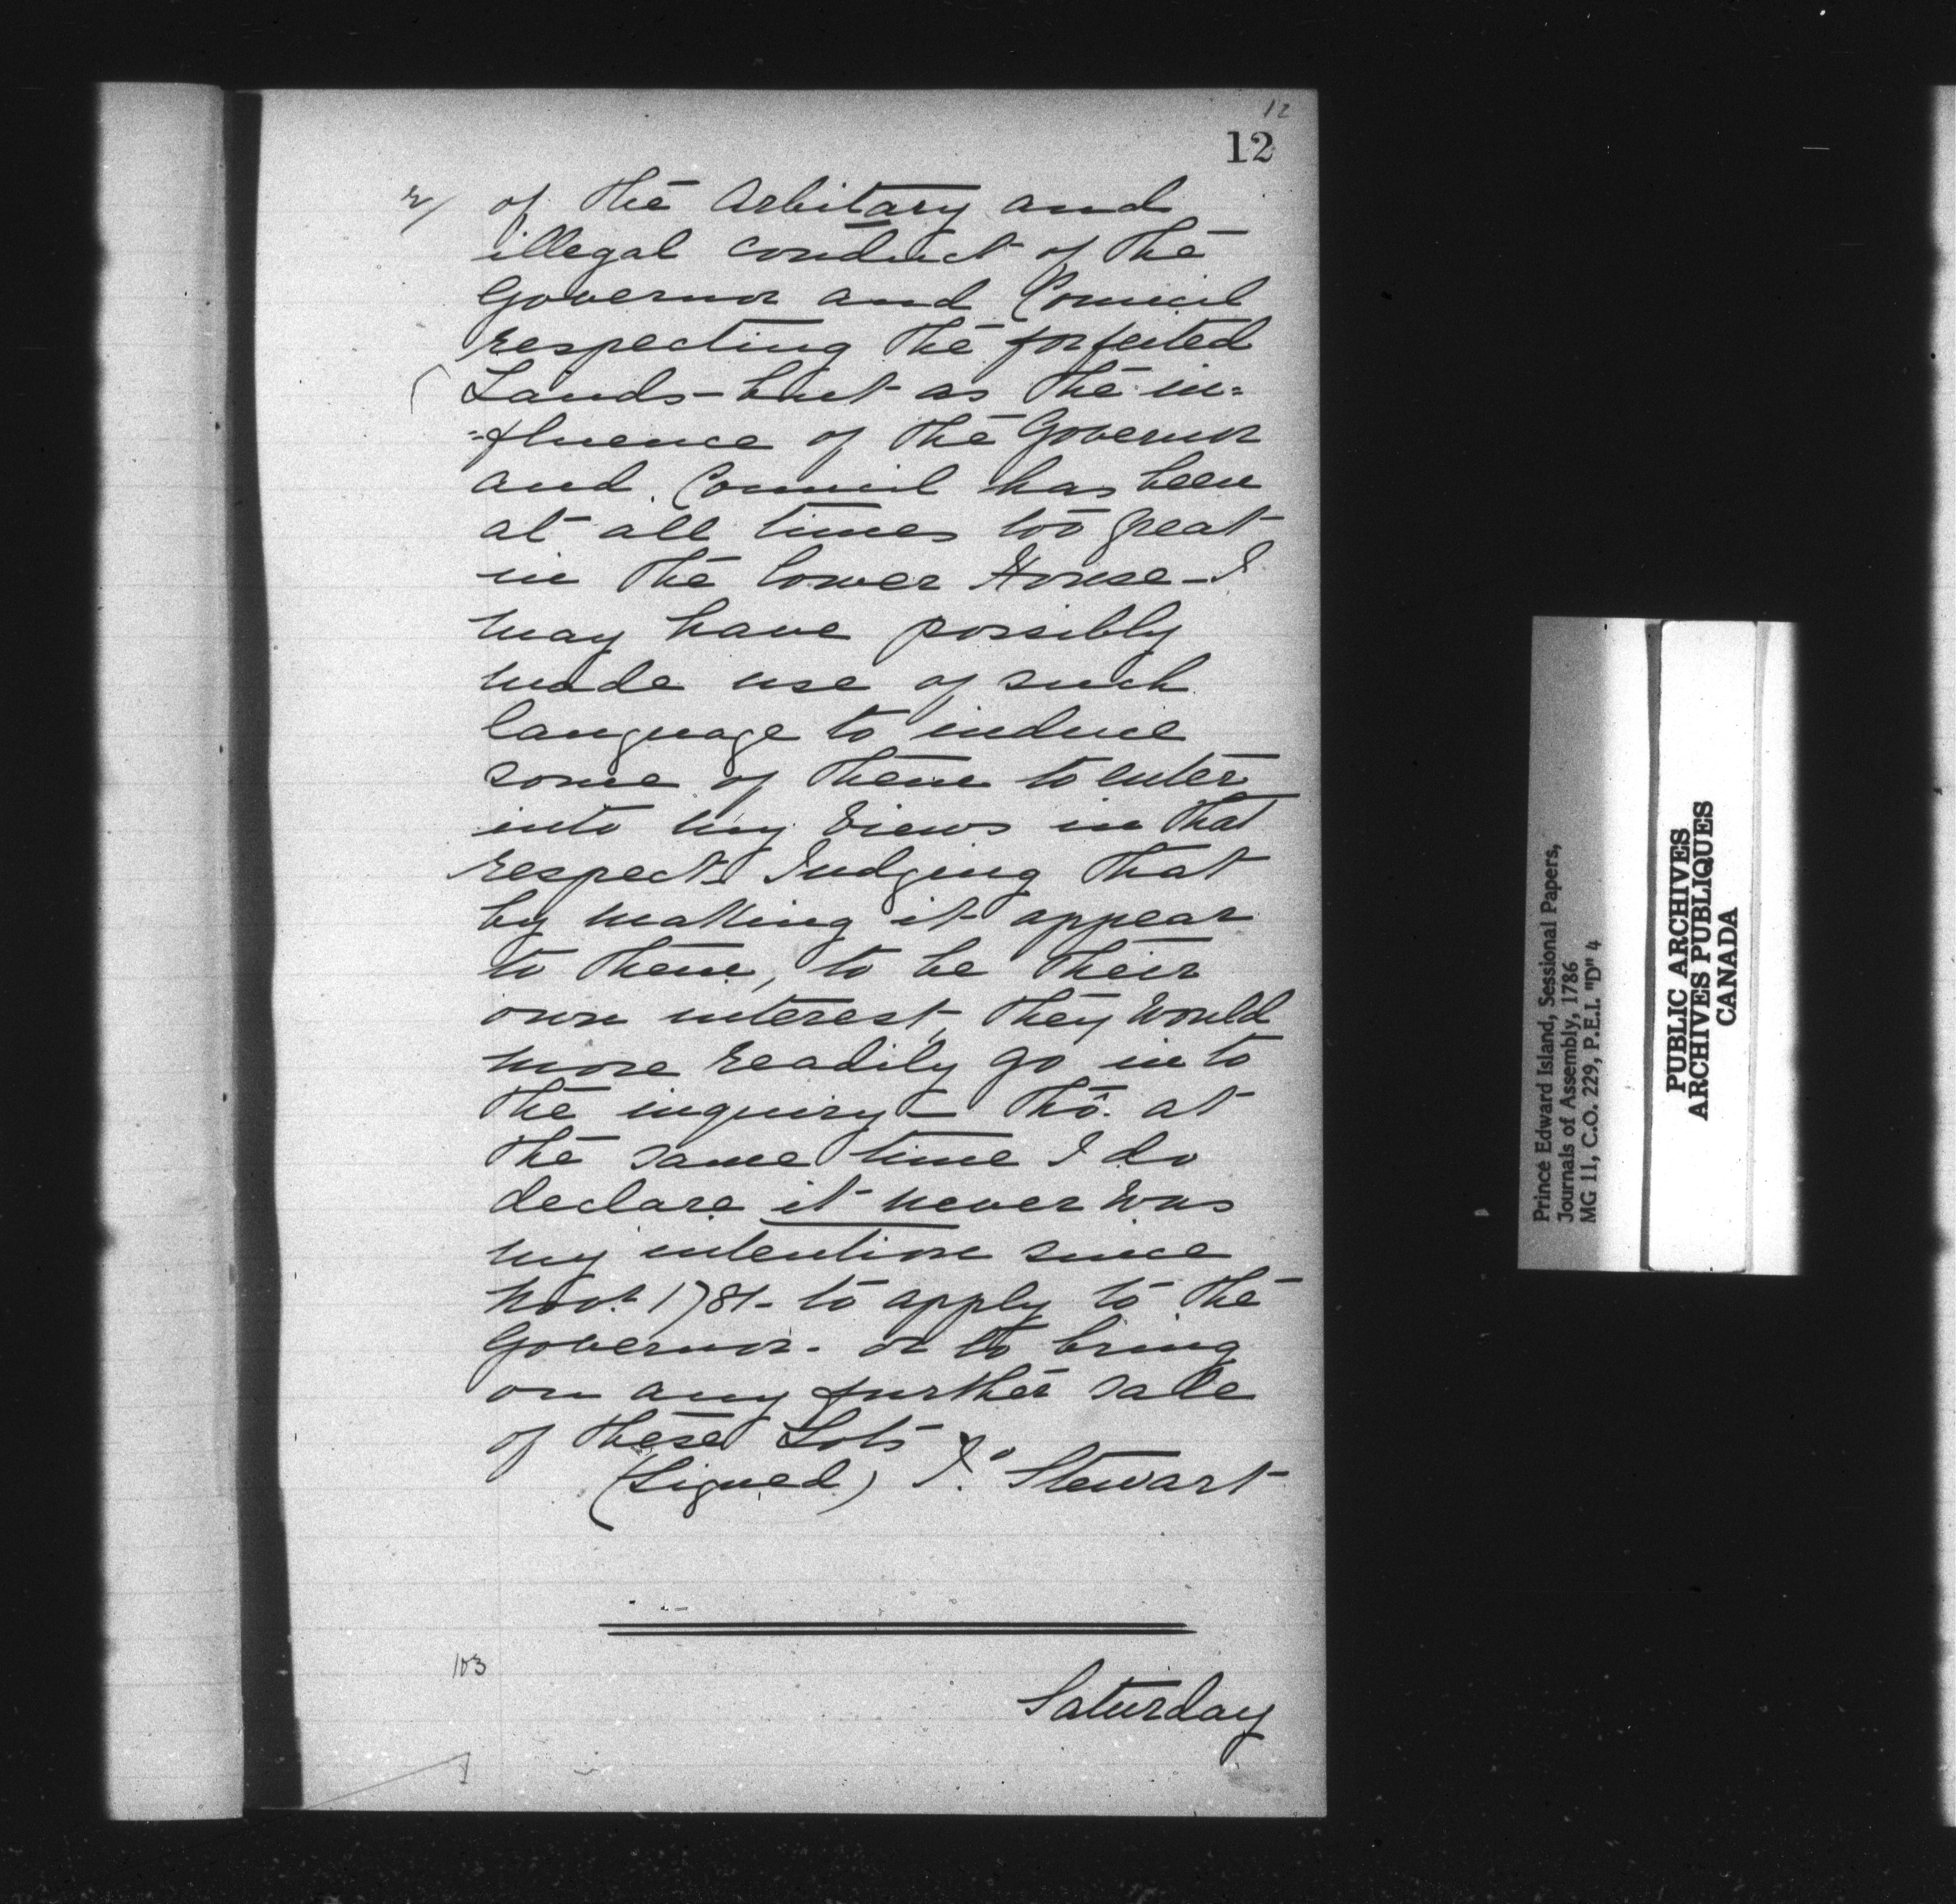 12
12
2/ of the Arbitary and
illegal conduct of the
Governor and Council
respecting the forfeited
Lands - but as the in=
=fluence of the Governor
and Council has been
at all times too great
in the lower House - I
may have possibly
made use of such
language to induce
some of them to enter
into my Views in that
respect Judging that
by making it appear
to them, to be their
own interest, they Would
more readily go into
the inquiry - tho. at
the same time I do
declare it never Was
my intention since
Novr. 1781 - to apply to the
Governor - or to bring
on any further sale
of these Lots
(Signed) Jo. Stewart
103
Saturday
Prince Edward Island, Sessional Papers,
Journals of Assembly, 1786
MG 11, C.O. 229, P.E.I. "D" 4
PUBLIC ARCHIVES
ARCHIVES PUBLIQUES
CANADA